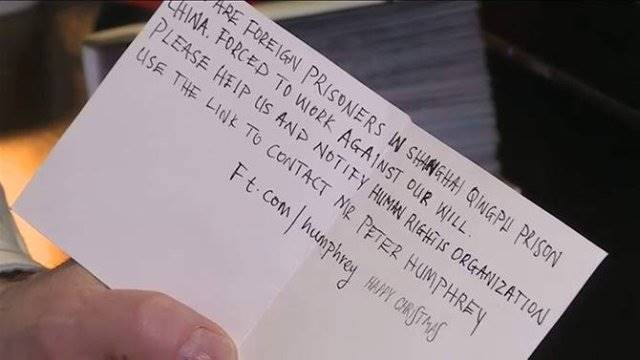 ARE FOREIGN PRISONERS IN SHANGHAI QINGPU PRISON
CHINA. FORCED TO WORK AGAINST OUR WILL.
PLEASE HELP US AND NOTIFY HUMAN RIGHTS ORGANIZATION
USE THE LINK TO CONTACT MR PETER HUMPHREY
Ft.com/humphrey HAPPY CHRISTMAS